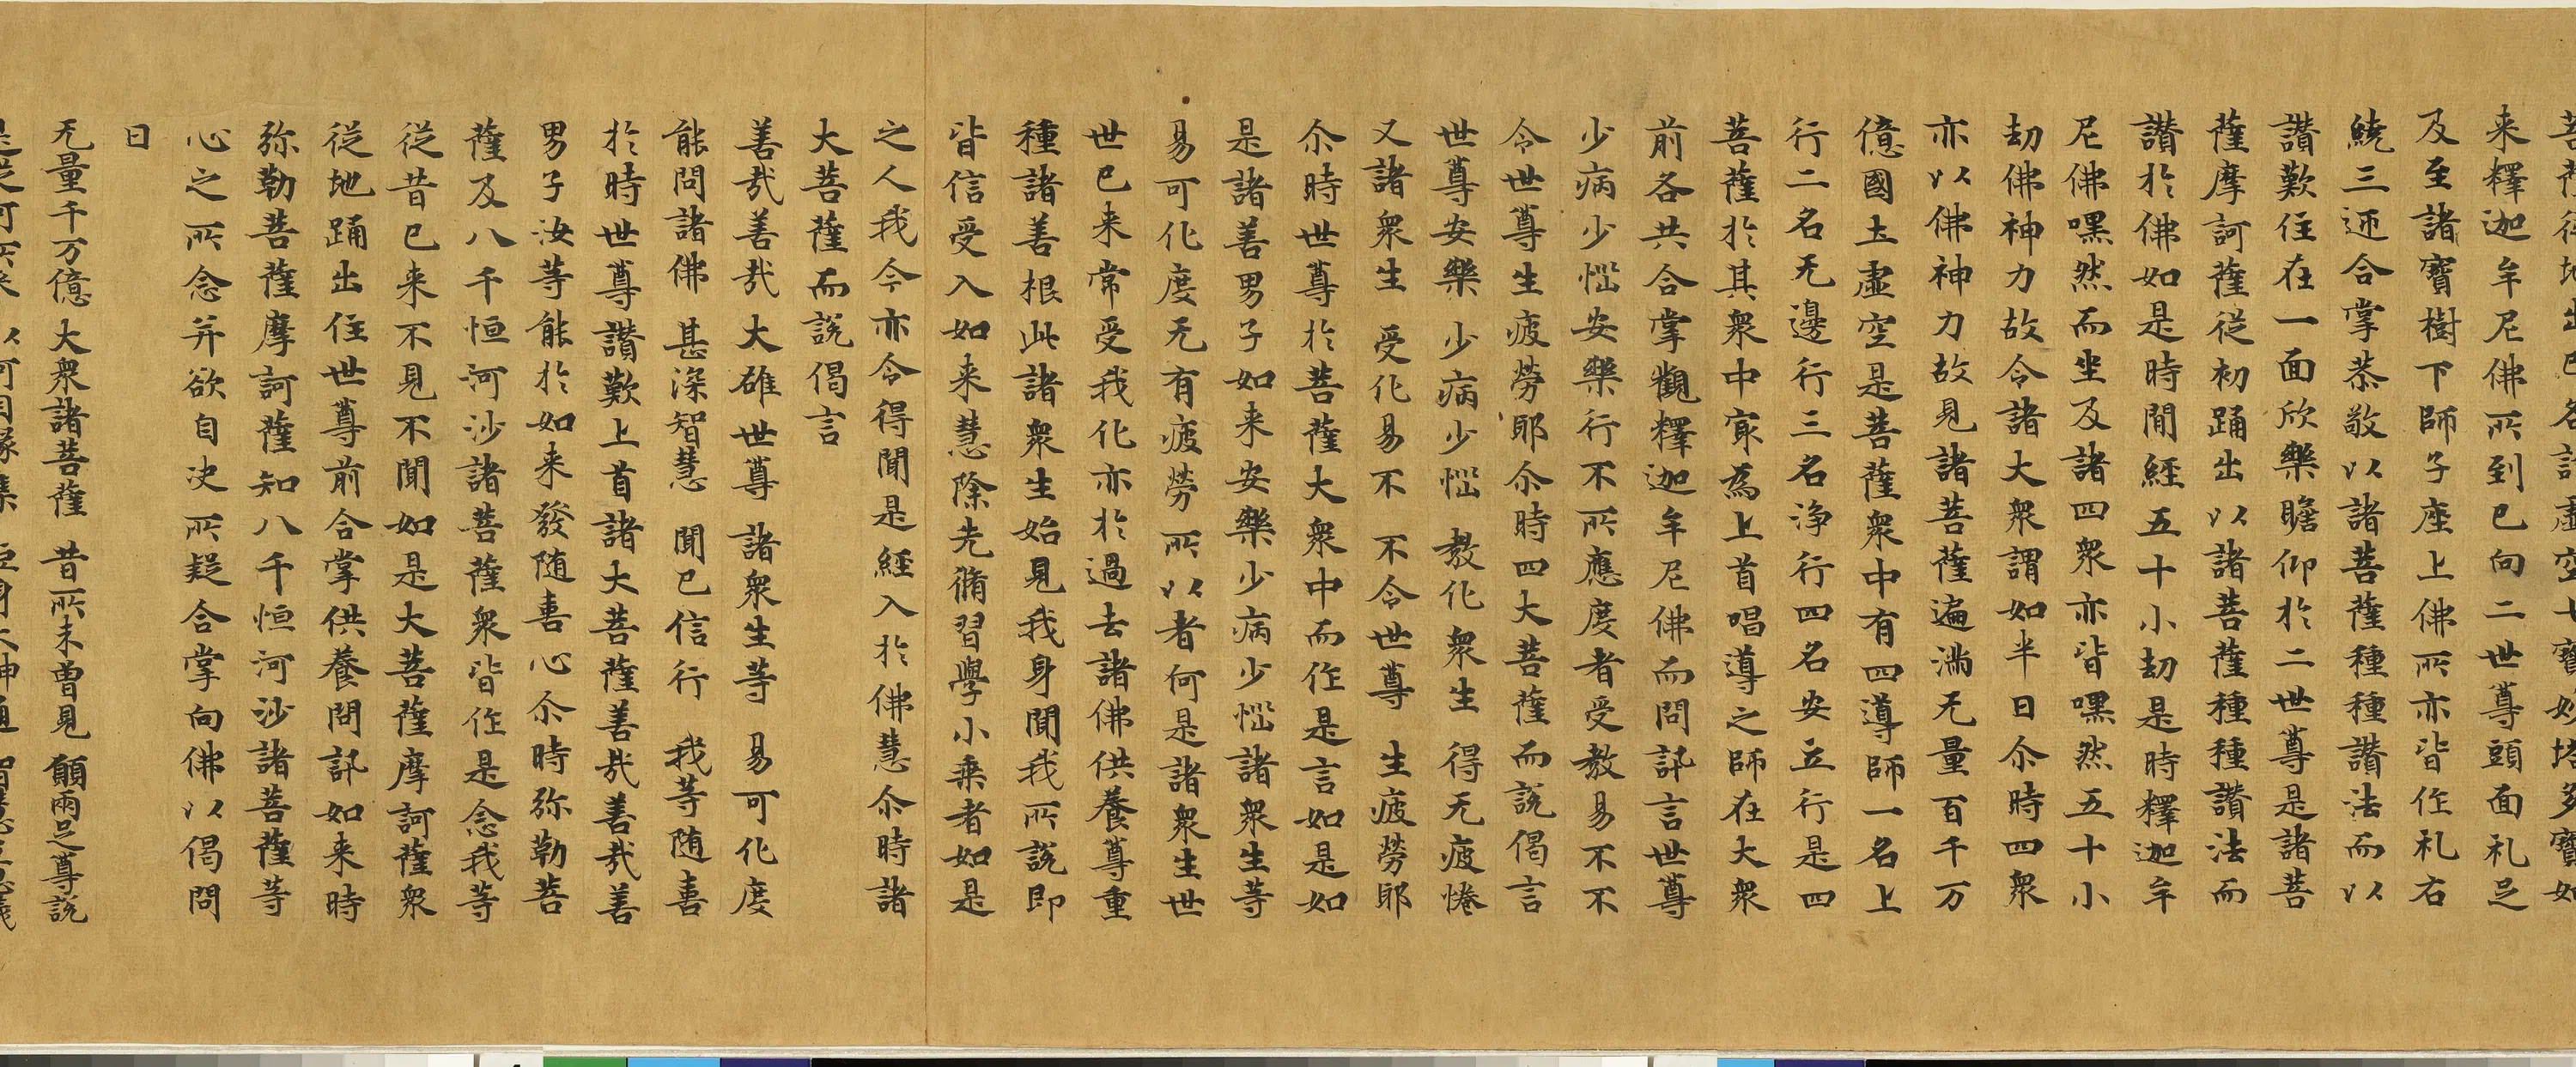 菩薩從地出已各詣虛空七寶妙塔多寶如
来釋迦牟尼佛所到已向二世尊頭面礼足
及至諸寶樹下師子座上佛所亦皆作礼右
繞三迊合掌恭敬以諸菩薩種種讃法而以
讃歎住在一面欣樂瞻仰於二世尊是諸菩
薩摩訶薩從初踊出以諸菩薩種種讃法而
讃於佛如是時閒經五十小劫是時釋迦牟
尼佛嘿然而坐及諸四衆亦皆嘿然五十小
劫佛神力故令諸大衆謂如半日尒時四衆
亦以佛神力故見諸菩薩遍滿无量百千万
億國土虛空是菩薩衆中有四導師一名上
行二名无邊行三名淨行四名安立行是四
菩薩於其衆中㝡為上首唱導之師在大衆
前各共合掌觀釋迦牟尼佛而問訊言世尊
少病少惱安樂行不所應度者受教易不不
令世尊生疲勞耶尒時四大菩薩而說偈言
世尊安樂 少病少惱 教化衆生 得无疲惓
又諸衆生 受化易不 不令世尊 生疲勞耶
尒時世尊於菩薩大衆中而作是言如是如
是諸善男子如来安樂少病少惱諸衆生等
易可化度无有疲勞所以者何是諸衆生世
世已来常受我化亦於過去諸佛供養尊重
種諸善根此諸衆生始見我身聞我所說即
皆信受入如来慧除先脩習學小乘者如是
之人我今亦令得聞是經入於佛慧尒時諸
大菩薩而說偈言
善㦲善㦲 大雄世尊 諸衆生等 易可化度
能問諸佛 甚深智慧 聞已信行 我等随喜
於時世尊讃歎上首諸大菩薩善㦲善㦲善
男子汝等能於如来發随喜心尒時弥勒菩
薩及八千恒河沙諸菩薩衆皆作是念我等
從昔已来不見不聞如是大菩薩摩訶薩衆
從地踊出住世尊前合掌供養問訊如来時
弥勒菩薩摩訶薩知八千恒河沙諸菩薩等
心之所念并欲自決所疑合掌向佛以偈問
曰
无量千万億 大衆諸菩薩 昔所未曾見 願兩足尊說
是從何所来 以何因縁集 巨身大神通 智慧